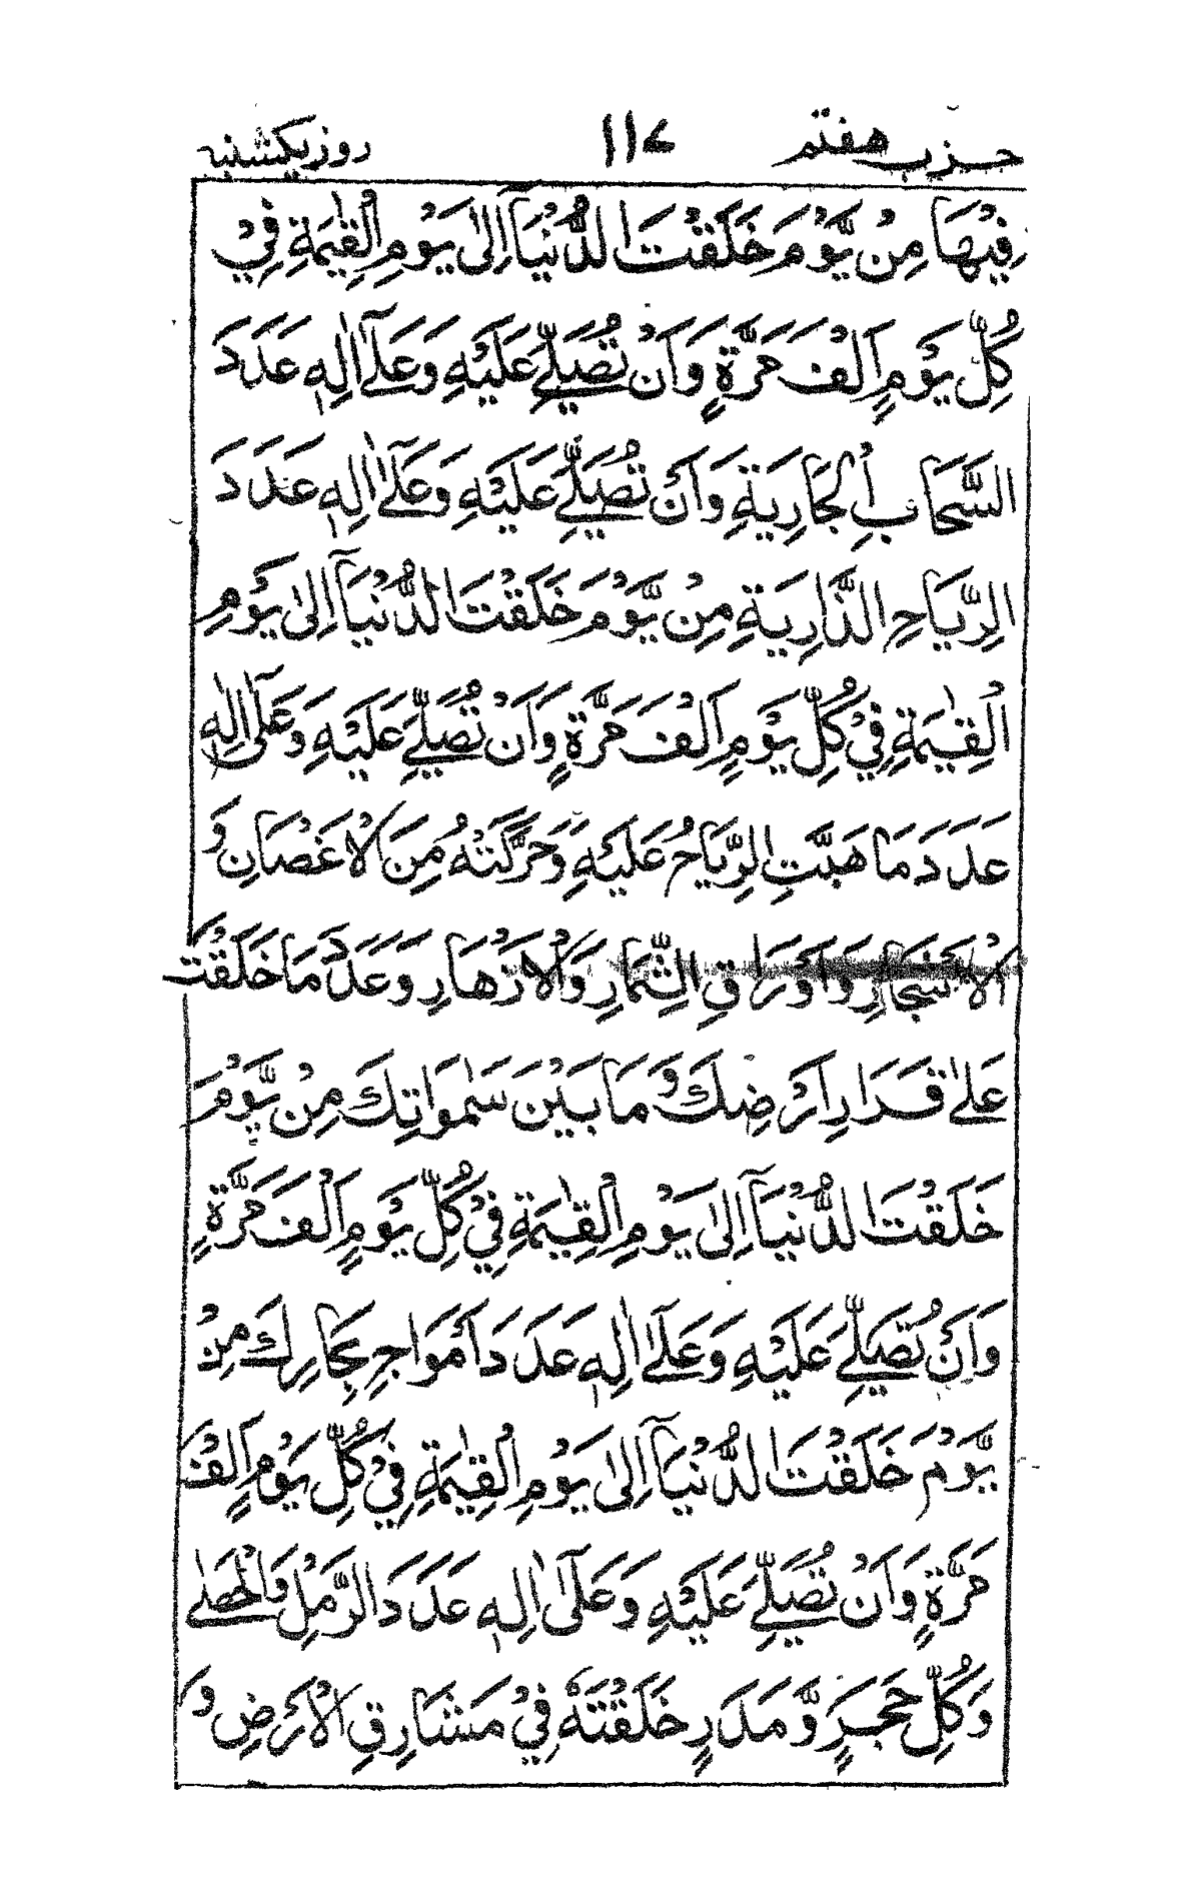 حزب هفتم ١١٧ روز یکشنبه
فِيْهَا مِنْ يَّوْمَ خَلَقْتَ الدُّنْيَآ اِلٰى يَوْمِ الْقِيٰمَةِ فِيْ
كُلِّ يَوْمٍ اَلْفَ مَرَّةٍ وَاَنْ تُصَلِّيَ عَلَيْهِ وَعَلٰٓى اٰلِهٖ عَدَدَ
السَّحَابِ الْجَارِيَةِ وَاَنْ تُصَلِّيَ عَلَيْهِ وَعَلٰٓى اٰلِهٖ عَدَدَ
الرِّيَاحِ الذَّارِيَةِ مِنْ يَّوْمَ خَلَقْتَ الدُّنْيَآ اِلٰى يَوْمِ
الْقِيٰمَةِ فِيْ كُلِّ يَوْمٍ اَلْفَ مَرَّةٍ وَاَنْ تُصَلِّيَ عَلَيْهِ وَعَلٰٓى اٰلِهٖ
عَدَدَ مَا هَبَّتِ الرِّيَاحُ عَلَيْهِ وَحَرَّكَتْهُ مِنَ الْاَغْصَانِ وَ
الْاَشْجَارِ وَاَوْرَاقِ الثِّمَارِ وَالْاَزْهَارِ وَعَدَدَ مَا خَلَقْتَ
عَلٰى قَرَارِ اَرْضِكَ وَمَا بَيْنَ سَمٰوَاتِكَ مِنْ يَّوْمَ
خَلَقْتَ الدُّنْيَآ اِلٰى يَوْمِ الْقِيٰمَةِ فِيْ كُلِّ يَوْمٍ اَلْفَ مَرَّةٍ
وَاَنْ تُصَلِّيَ عَلَيْهِ وَعَلٰٓى اٰلِهٖ عَدَدَ اَمْوَاجِ بِحَارِكَ مِنْ
يَّوْمَ خَلَقْتَ الدُّنْيَآ اِلٰى يَوْمِ الْقِيٰمَةِ فِيْ كُلِّ يَوْمٍ اَلْفَ
مَرَّةٍ وَاَنْ تُصَلِّيَ عَلَيْهِ وَعَلٰٓى اٰلِهٖ عَدَدَ الرَّمْلِ وَالْحَصٰى
وَكُلِّ حَجَرٍ وَّمَدَرٍ خَلَقْتَهٗ فِيْ مَشَارِقِ الْاَرْضِ وَ